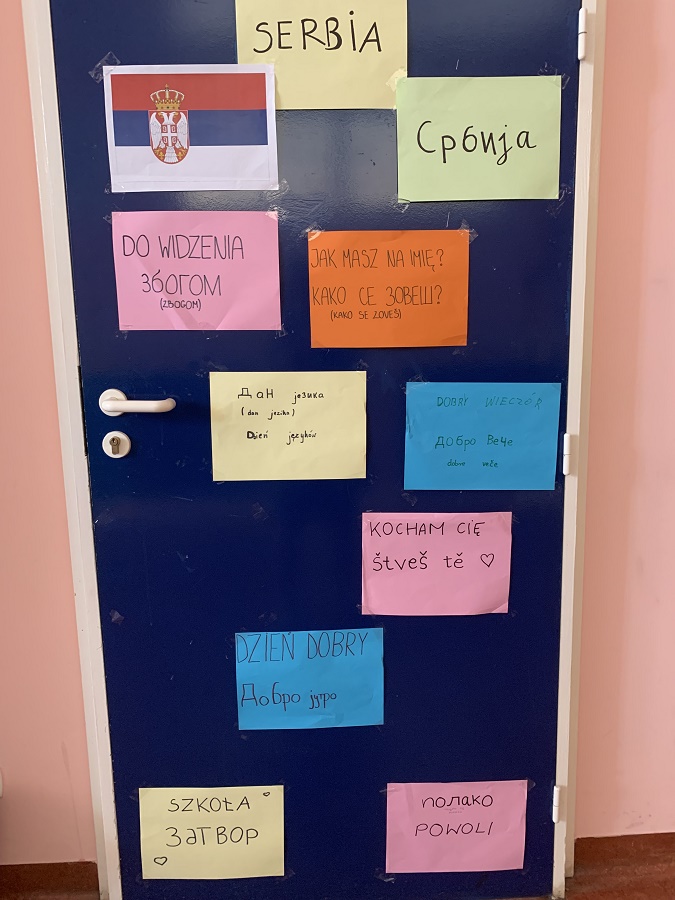 SERBIA
Србија
DO WIDZENIA
ЗБОГОМ
(ZBOGOM)
JAK MASZ NA IMIĘ?
КАКО СЕ ЗОВЕШ?
(KAKO SE ZOVEŠ)
Дан језика
(dan jezika)
Dzień języków
DOBRY WIECZÓR
Добро Вече
dobro veče
KOCHAM CIĘ
štveš tě ♡
DZIEŃ DOBRY
Добро јутро
SZKOŁA
ЗАТВОР
полако
POWOLI